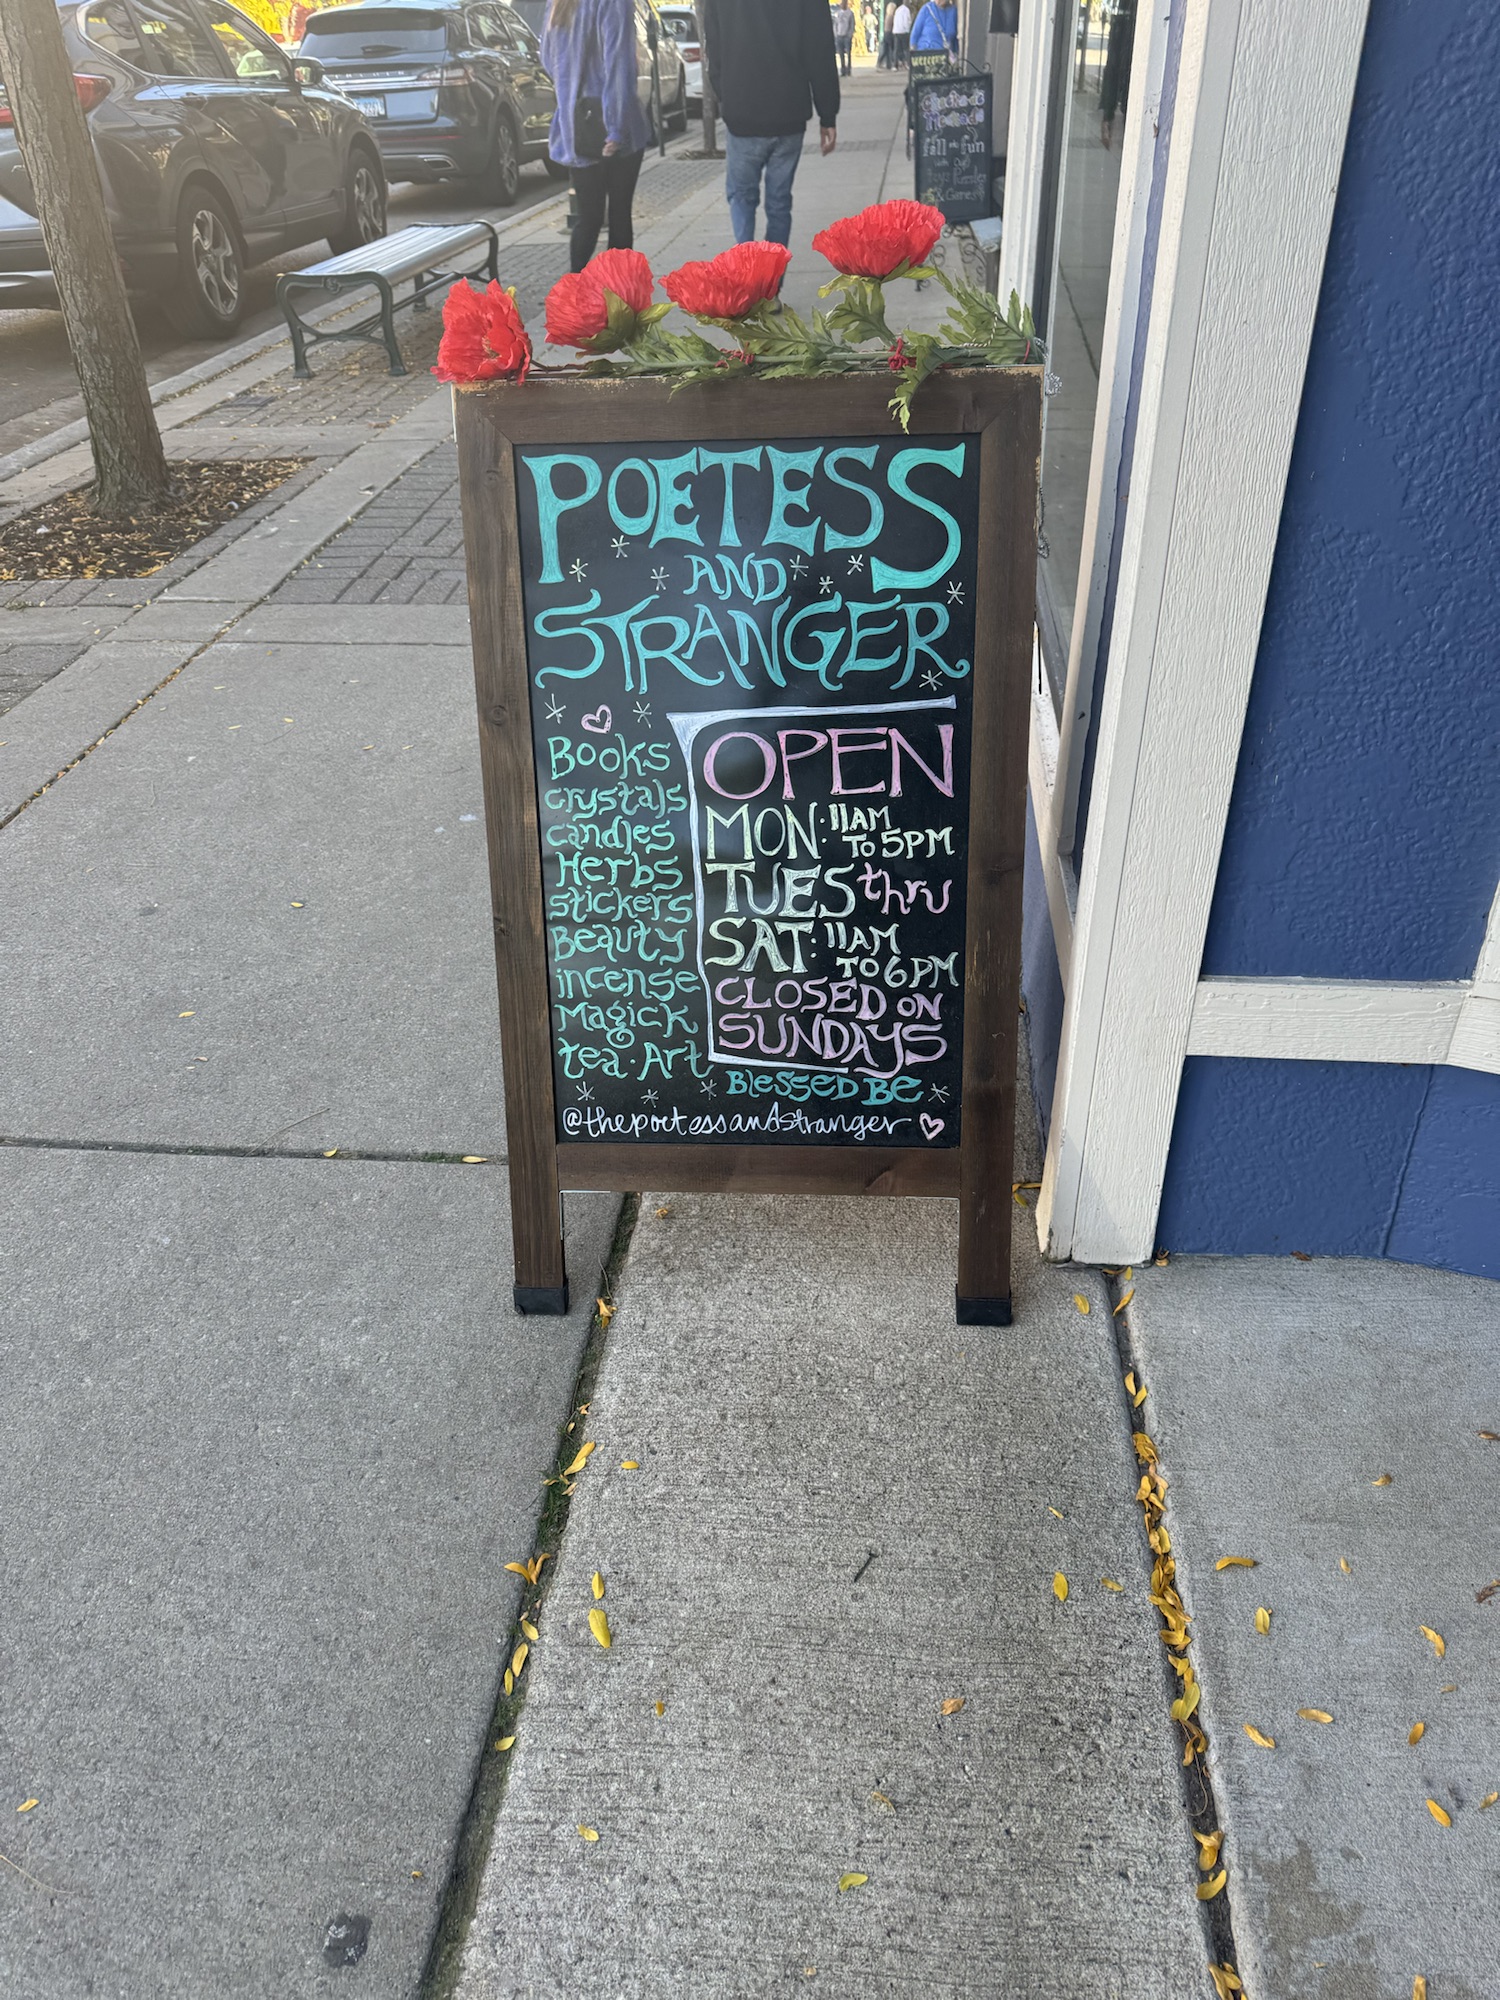 POETESS
AND
STRANGER
Books
crystals
candles
Herbs
stickers
Beauty
incense
Magick
tea · Art
OPEN
MON: 11AM
TO 5PM
TUES thru
SAT: 11AM
TO 6PM
CLOSED ON
SUNDAYS
BLESSED BE
@thepoetessandstranger
WELCOME
fall fun